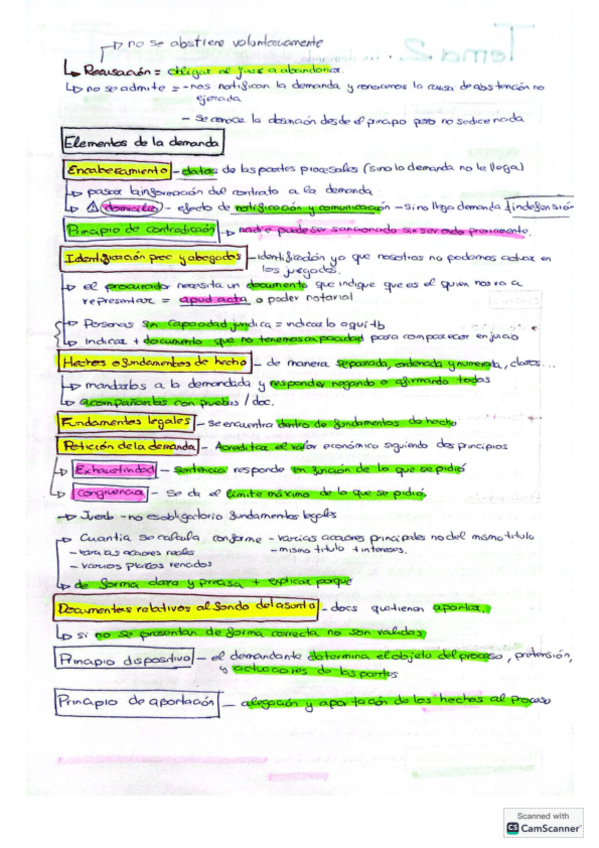 no se abstiene voluntariamente
Recusación = obligar al juez a abandonar.
no se admite = - nos notifican la demanda y conocemos la causa de abstención no
ejercida
- Se conoce la desde el principio pero no se dice nada
Elementos de la demanda
Encabezamiento - datos de las partes procesales (sino la demanda no le llega)
pasar la información del contrato a la demanda
domicilio - efecto de notificación y comunicación - sino llega demanda indefensión
Principio de contradicción nadie puede ser sancionado sin ser oido previamente.
Identificación proc y abogados - identificación ya que nosotros no podemos actuar en
los juzgados.
el procurador necesita un documento que indique que es el quien nos va a
representar = apud acta o poder notarial
Personas sin capacidad jurídica = indicarlo aquí tb
Indicar + documento que no tenemos capacidad para comparecer en juicio
Hechos o fundamentos de hecho - de manera separada, ordenada y numerada, claros...
mandarlos a la demandada y responder negando o afirmando todos
acompañarlos con pruebas / doc.
Fundamentos legales - se encuentra dentro de fundamentos de hecho
Petición de la demanda - Acreditar el valor económico siguiendo dos principios
Exhaustividad - sentencia responde en función de lo que se pidió
congruencia - Se da el límite máximo de lo que se pidió.
J. verb - no es obligatorio fundamentos legales
Cuantía se calcula conforme - varias acciones principales no del mismo título
- varias acciones reales - mismo título + intereses.
- varios plazos vencidos
de forma clara y precisa + explicar porqué
Documentos relativos al fondo del asunto - docs que tienen aportar.
si no se presentan de forma correcta no son validos
Principio dispositivo - el demandante determina el objeto del proceso, pretensión,
y actuaciones de las partes
Principio de aportación - alegación y aportación de los hechos al proceso
Scanned with
CS CamScanner